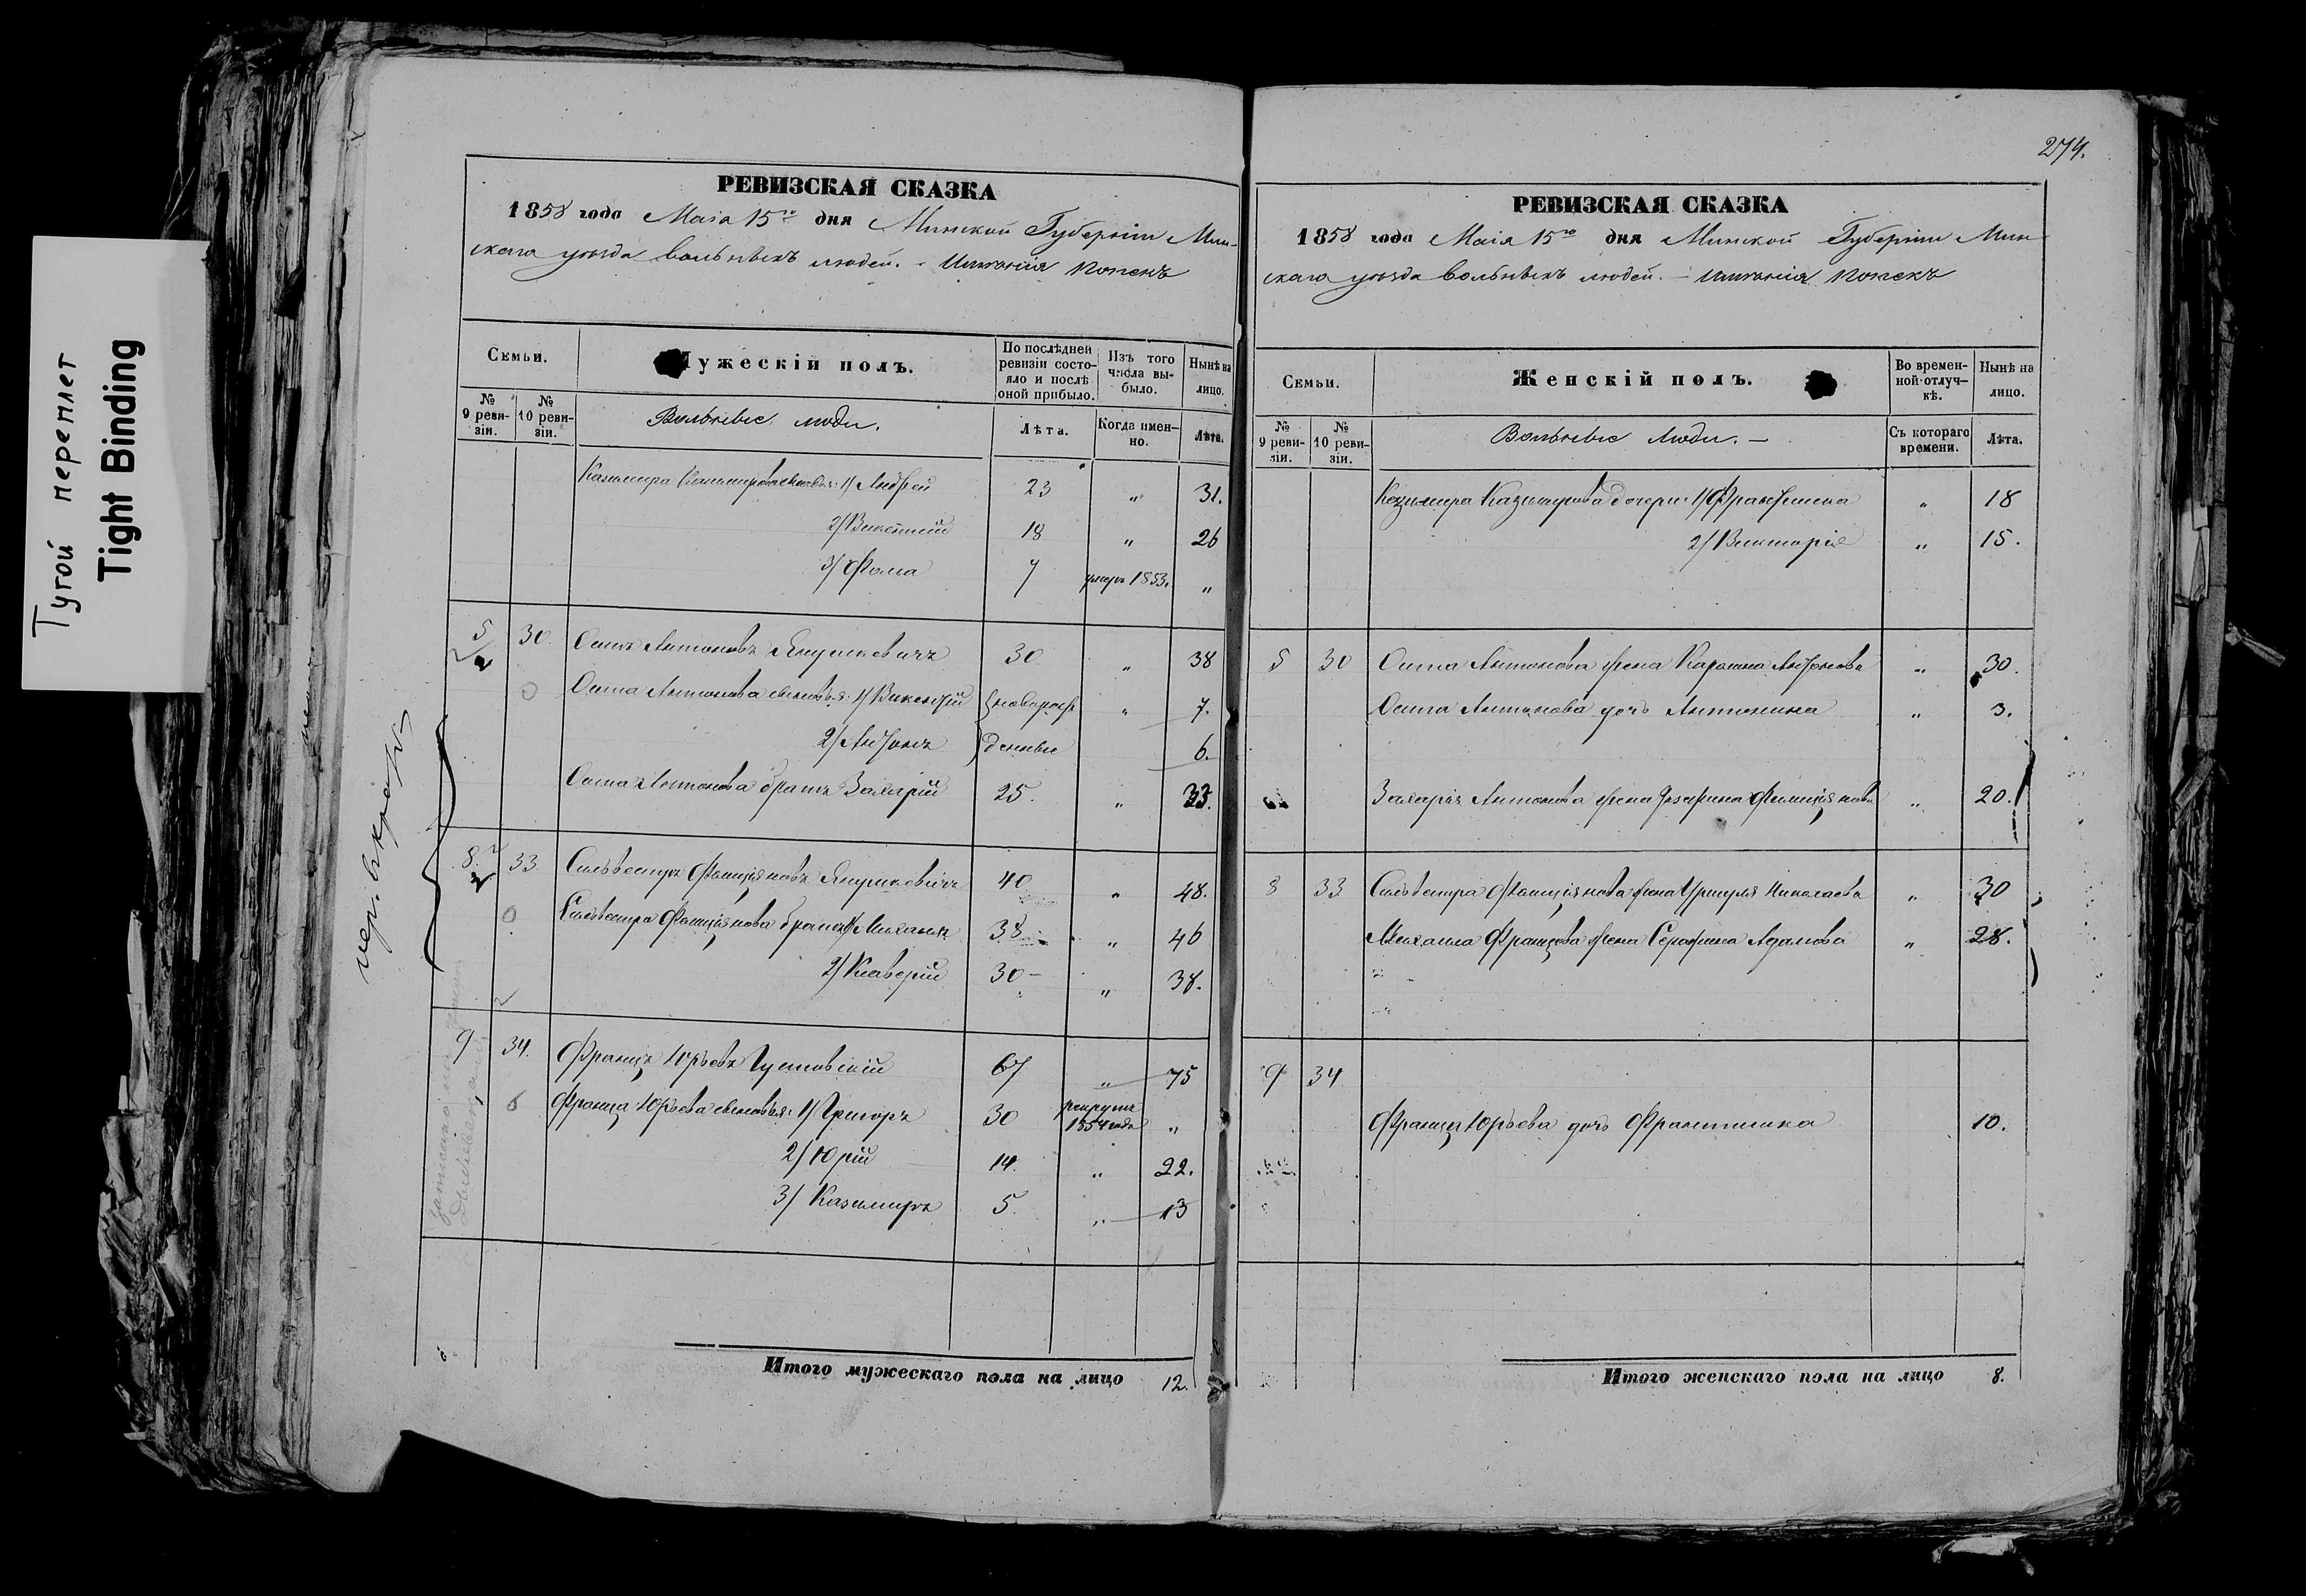 Тугой переплет
Tight Binding
274.
РЕВИЗСКАЯ СКАЗКА
1858 года Маія 15го дня Минской Губерніи Мин-
скаго уѣзда вольныхъ людей. - Имѣнія
Семьи.
Мужескій полъ.
По послѣдней ревизіи состояло и послѣ оной прибыло.
Изъ того числа выбыло.
Нынѣ на лицо.
№ 9 ревизіи.
№ 10 ревизіи.
Вольные люди.
Лѣта.
Когда именно.
Лѣта.
Казимира Казимирова сыновья: 1/ Андрей 23 " 31.
2/ Викентій 18 " 26
3/ Фома 7 умеръ 1853. "
5 30 Осипъ Антоновъ Янушкевичъ 30 " 38
Осипа Антонова сыновья: 1/ Викентій новорож " 7.
2/ Антонъ денные 6.
Осипа Антонова братъ Захарій 25. " 33.
8. 33 Сильвестръ Фелиціяновъ Янушкевичъ 40 " 48.
Сильвестра Фелиціянова братья 1/ Михаилъ 38 " 46
2/ Ксаверій 30 - " 38.
9 34. Францъ Юрьевъ 67 " 75
Франца Юрьева сыновья: 1/ Григоръ 30 рекрутъ 1854 года "
2/ Юрій 14. " 22.
3/ Казимиръ 5. " 13
Итого мужескаго пола на лицо 12.
РЕВИЗСКАЯ СКАЗКА
1858 года Маія 15го дня Минской Губерніи Мин-
скаго уѣзда вольныхъ людей. - Имѣнія
Семьи.
Женскій полъ.
Во временной отлучкѣ.
Нынѣ на лицо.
№ 9 ревизіи.
№ 10 ревизіи.
Вольные Люди. -
Съ котораго времени.
Лѣта.
Казимира Казимирова дочери: 1/ Францишка " 18
2/ Викторія " 15.
5 30 Осипа Антонова жена Антонова " 30.
Осипа Антонова дочь Антонина " 3.
Захарія Антонова жена Фелиціянова " 20.
8 33 Сильвестра Фелиціянова жена Уршуля Николаева " 30
Михаила жена Серафина Адамова " 28.
9 34
Франца Юрьева дочь Франтишка 10.
Итого женскаго пола на лицо 8.